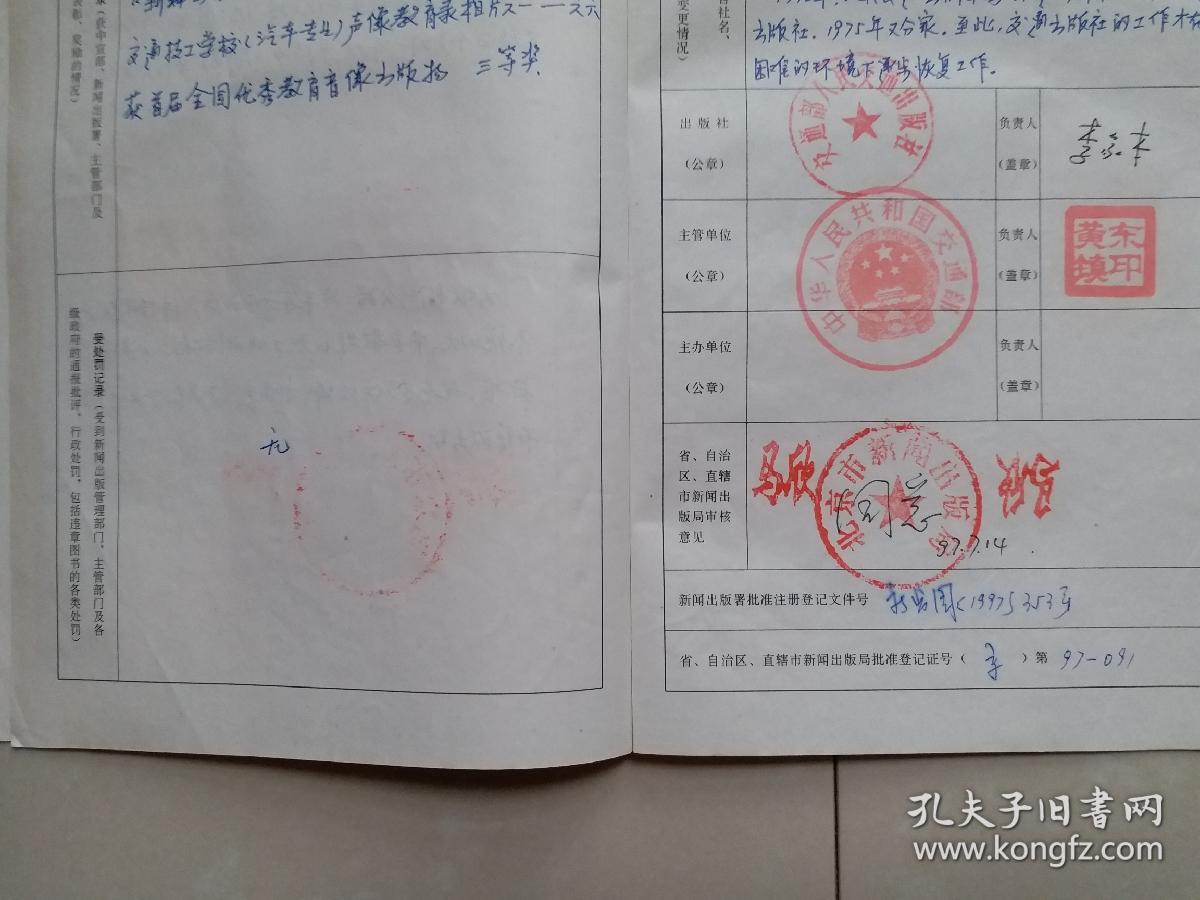 交通技工学校(汽车专业)声像教育录相片
获首届全国优秀教育音像出版物 三等奖
受处罚记录(受到新闻出版管理部门、主管部门及各
级政府的通报批评、行政处罚,包括违章图书的各类处罚)
无
变更情况)
出版社,1975年又分家。至此,交通出版社的工作才在
困难的环境下逐步恢复工作。
出版社
(公章)
交通部人民交通出版社
负责人
(盖章)
主管单位
(公章)
中华人民共和国交通部
负责人
(盖章)
黄镇东印
主办单位
(公章)
负责人
(盖章)
省、自治
区、直辖
市新闻出
版局审核
意见
北京市新闻出版局
同意
97.7.14
新闻出版署批准注册登记文件号
353号
省、自治区、直辖市新闻出版局批准登记证号( 京 )第 97-091
孔夫子旧书网
www.kongfz.com